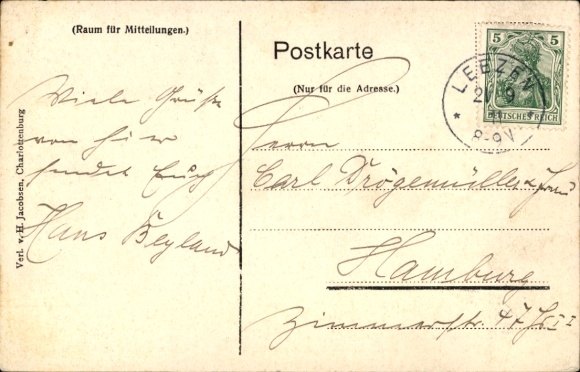 (Raum für Mitteilungen.)
Postkarte
(Nur für die Adresse.)
5
DEUTSCHES REICH
LEEZEN
9
8-9V
Viele Grüße
von hier
sendet Euch
Hans Beyland
Herrn
Carl Drögemüller u. Frau
Hamburg
Zimmerstr. 47
Verl. v. H. Jacobsen, Charlottenburg